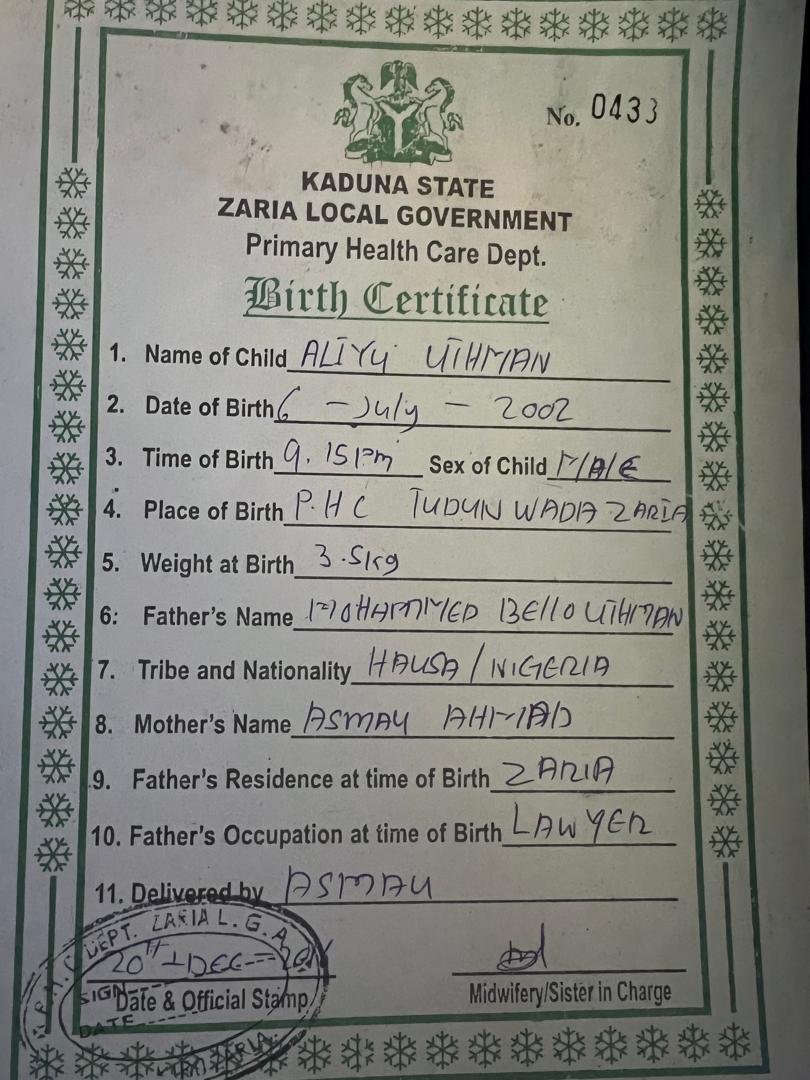 No. 0433
KADUNA STATE
ZARIA LOCAL GOVERNMENT
Primary Health Care Dept.
Birth Certificate
1. Name of Child ALIYU UTHMAN
2. Date of Birth 6 - July - 2002
3. Time of Birth 9.15pm Sex of Child MALE
4. Place of Birth P.H C TUDUN WADA ZARIA
5. Weight at Birth 3.5kg
6: Father's Name MOHAMMED BELLO UTHMAN
7. Tribe and Nationality HAUSA / NIGERIA
8. Mother's Name ASMAU AHMAD
9. Father's Residence at time of Birth ZARIA
10. Father's Occupation at time of Birth LAWYER
11. Delivered by ASMAU
DEPT. ZARIA L.G.A
20TH - DEC =
SIGN
Date & Official Stamp Midwifery/Sister in Charge
DATE